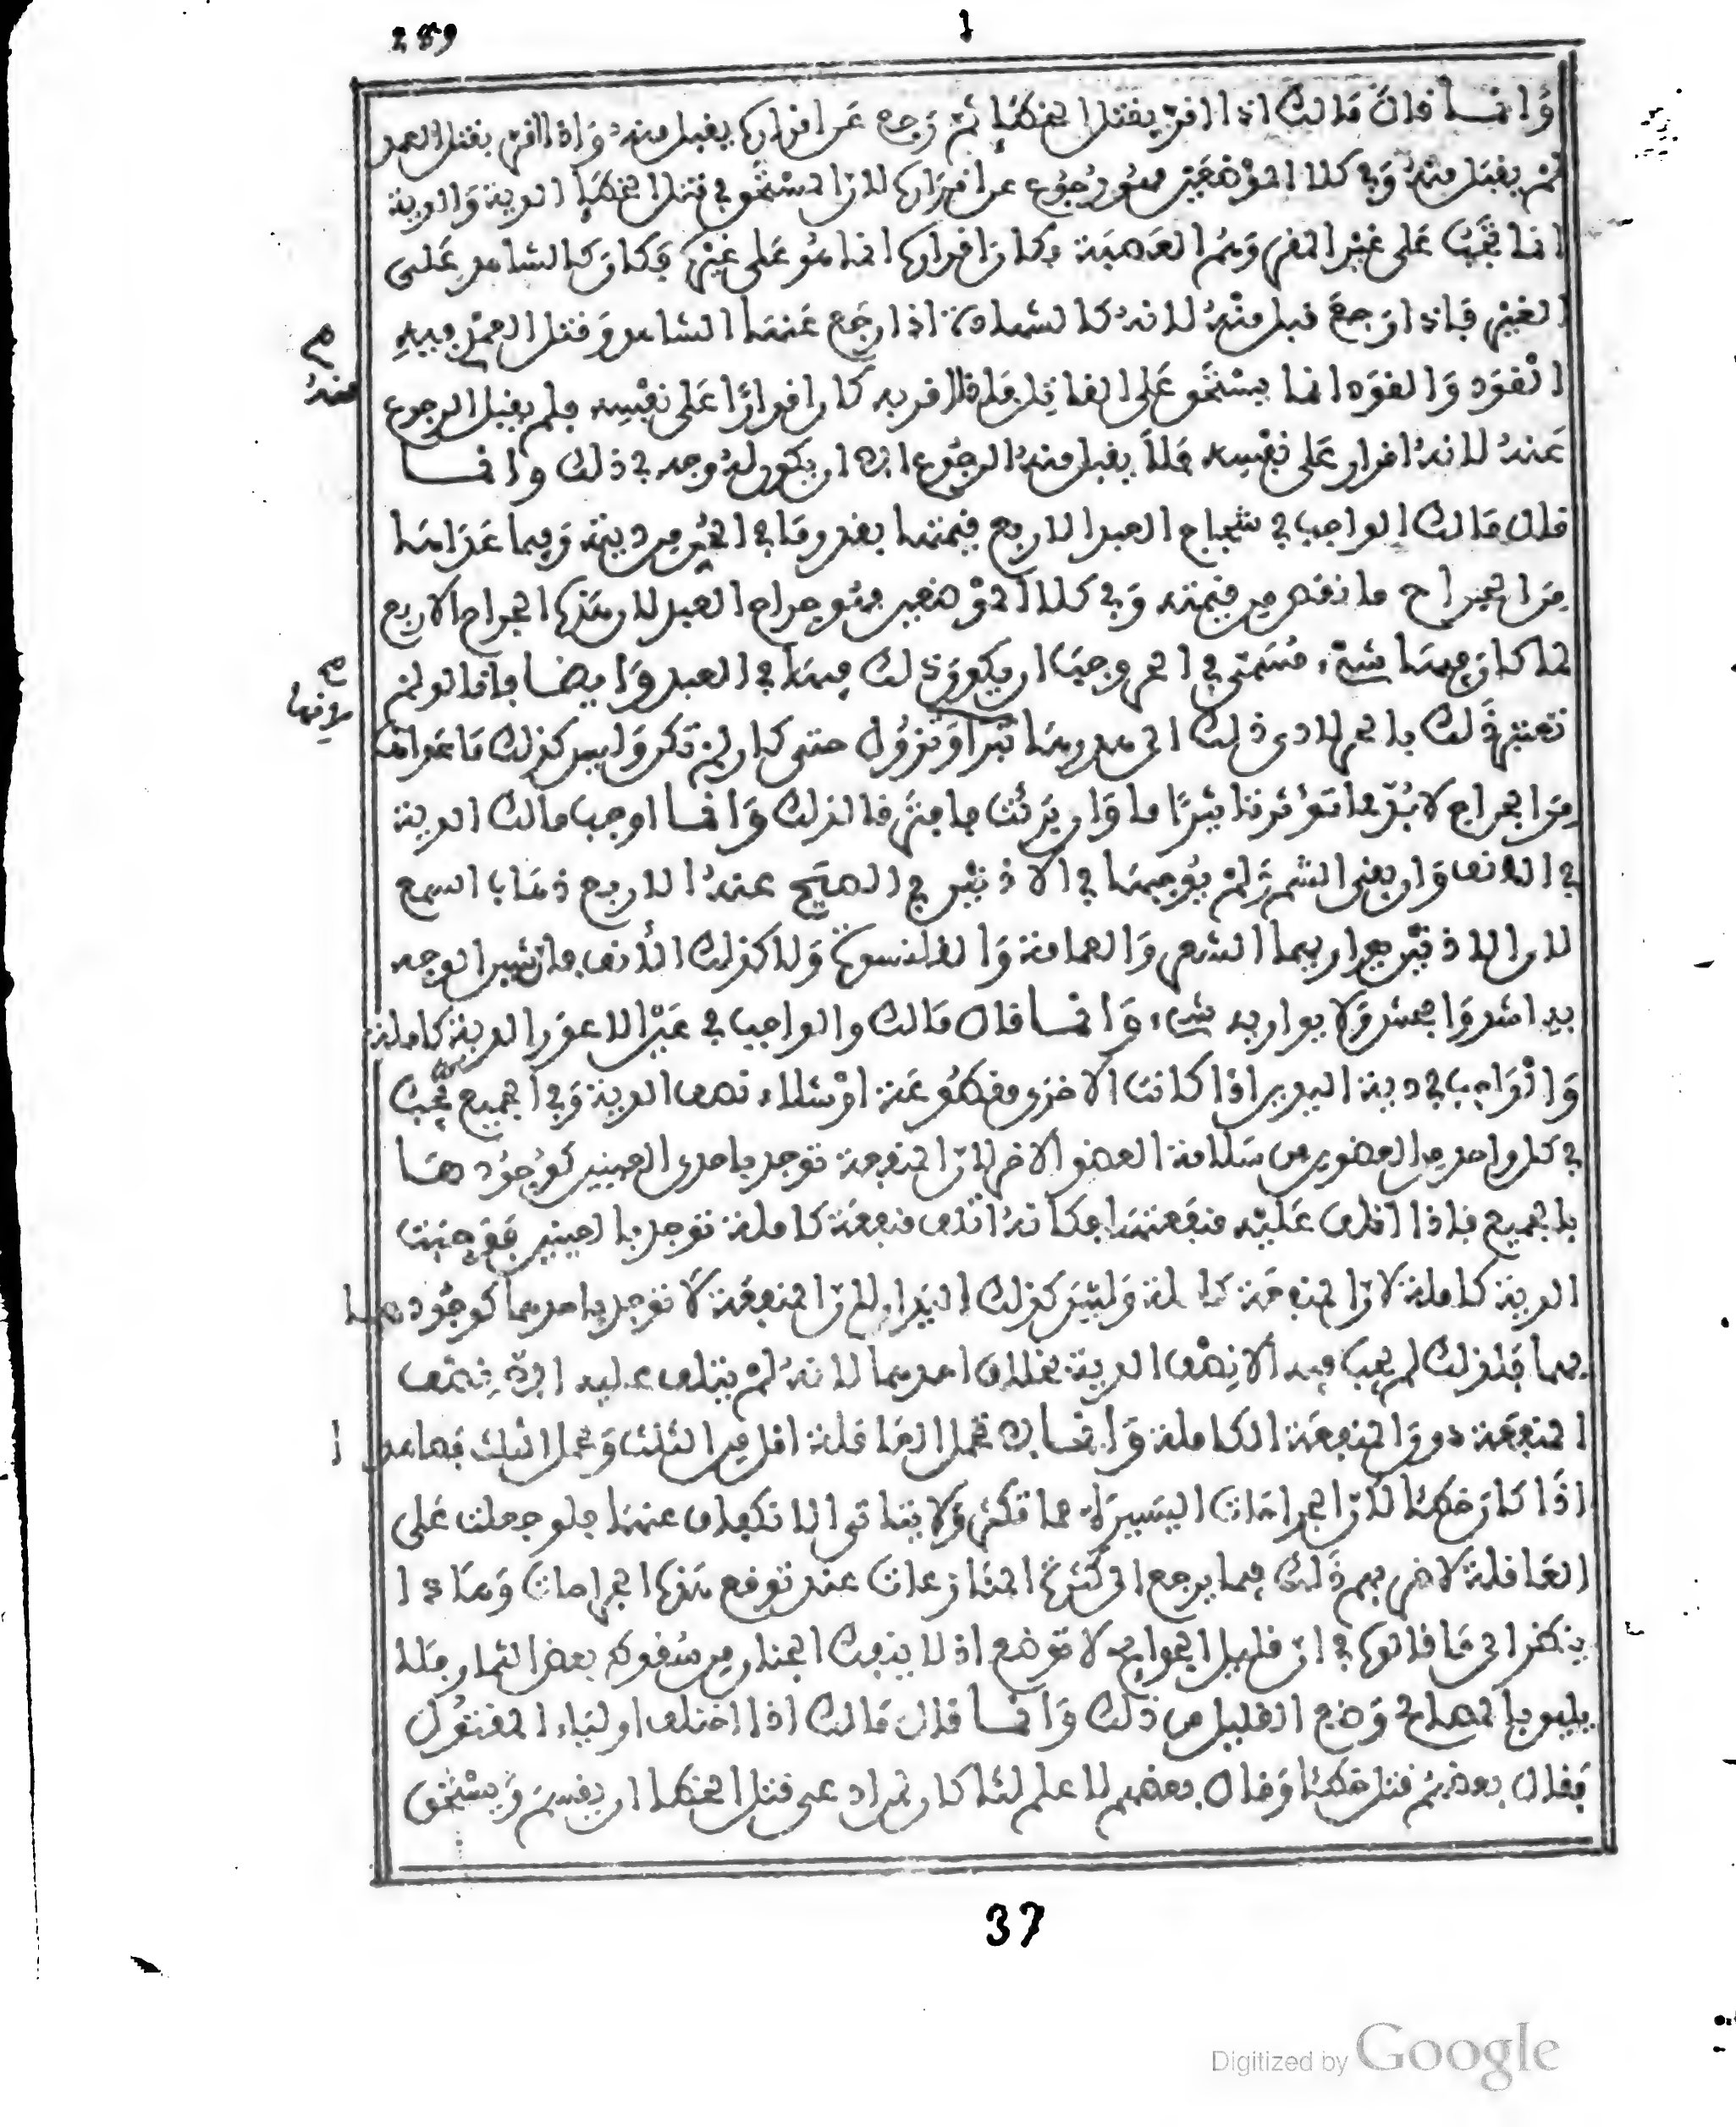 289
وَانما قال مالك اذا اقرّ بقتل الخطإ ثم رَجع عن اقراره يقبل منه وَاذا اقر بقتل العمد
لم يقبل منه وَفي كلا الموْضعَيْن هو رُجُوع عن اقراره لان المستحَق في قتل الخطإ الدية وَالدية
انما تجَبُ على غيْر المقر وَهُم العَصَبَة فكان اقراره انما هُو عَلى غيْره فكان كالشاهد عَلى
الغيْر فاذا رَجعَ قبل منْهُ لانهُ كالشهادة اذا رجَع عَنهَا الشاهد وَقتل العمْد فيه
الْقوَد وَالقوَد انما يسْتحَق عَلى القاتل فاذا اقر به كان اقرارًا عَلى نفْسه فلم يقبل الرجوع
عَنهُ لانهُ اقرار عَلى نفْسه فلا يقبل منهُ الرجُوع الا ان يكون لهُ وجه في ذلك وانما
قال مالك الواجب في شجاج العبد الاربع قيمتها بقدر مَا في الحُرّ من ديته وَفيما عَدَاهَا
مِن الجراح ما نقص من قيمته وَفي كلا الموْضعين هُو جراح العبد لان هَذه الجراح الاربع
لما كان فيهَا شيْء مُسَمّى في الحر وجبَ ان يكون ذلك فيهَا في العبد وَايضا فانا لو لم
نعتبر ذَلك بالحر لادى ذلك الى هدرهَا تبرا وَتزوُل حتى كان لم تكن وَليس كذلك مَا عَداهَا
مِنَ الجراح لابُدّ مَا تؤثر تاثيرًا ما وَان بَرئتْ فافترقا لذلك وَانما اوجب مالك الدية
في الانف وَان بقى الشم وَلم يُوجبهَا في الاذنيْن في الصحيح عندهُ الا مع ذهَاب السمع
لان الاذنيْن يواريهما الشعر وَالعمامة وَالقلنسوة وَلا كذلك الأنف فان شين الوجه
به اشد وَافحش وَلا يواريه شيْء وَانما قال مَالك والواجب في عَيْن الاعوَر الدية كاملة
وَالْوَاجب في دية اليدين اذا كانت الاخرى مقطُوعَة اوْ شلاء نصف الدية وَفي الجميع تجبُ
في كل واحد من العضوين مع سَلامة العضو الاخر لان المنفعة توجد باحدى العينين كوُجُودهَا
بالجميع فاذا اتلف عَليْه منفعَتهَا فكانهُ اتلف منفعَة كاملة توجد بالعينين فوَجبَت
الدية كاملة لان المنفعَة كاملة وَليْسَ كذلك اليَدان لان المنفعَة لاَ توجد باحدهما كوجُودها
بهما فلذلك لم يجب فيه الا نِصْف الدية بخلاف احدهما لانهُ لمْ يتلف عليه الا نصْف
المنفعَة دون المنفعَة الكاملة وَانما لا تحمل العَاقلة اقل مِن الثلث وَتحمل الثلث فصاعدا
اذَا كان خطئا لان الجراحَات اليَسيرَة مما تكثر وَلا يتاتى الا تكفاف عنهَا فلو جعلت عَلى
العَاقلة لاضر بهم ذَلك فيما يرجع الى كثرة المنَازعات عند توقع هَذه الجراحات وَهَذا
ينظر الى مَا قالوه في ان قليل الجوايح لا توضع اذ لا ينفك الجنان من سُقوط بعض الثمار فلا
يليق بالمصالح وَضع القليل من ذلك وَانما قال مَالك اذا اختلف اوليَاء المقتُول
فقال بعضهُم قتل خطئا وَقال بعضهم لا علم لنَا كان لمن ادعى قتل الخطا ان يقسمَ وَيسْتحَق
37
Digitized by Google